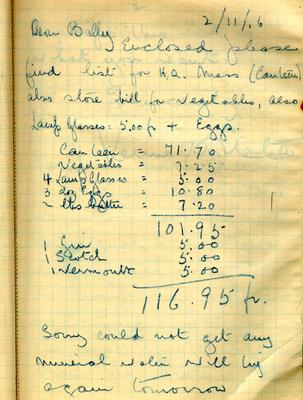 2/11/16
Dear Billy
Enclosed please
find list for H.Q. Mess (Canteen)
also store bill for vegetables, also
Lamp Glasses: 5.00 fr + Eggs.
Canteen 71.70
Vegetables = 7.25
4 Lamp Glasses = 5.00
3 doz Eggs = 10.80
2 lbs butter = 7.20
101.95
1 Gin 5.00
1 Scotch 5.00
1 Vermouth 5.00
116.95 fr.
Sorry could not get any
mineral water will try
again tomorrow